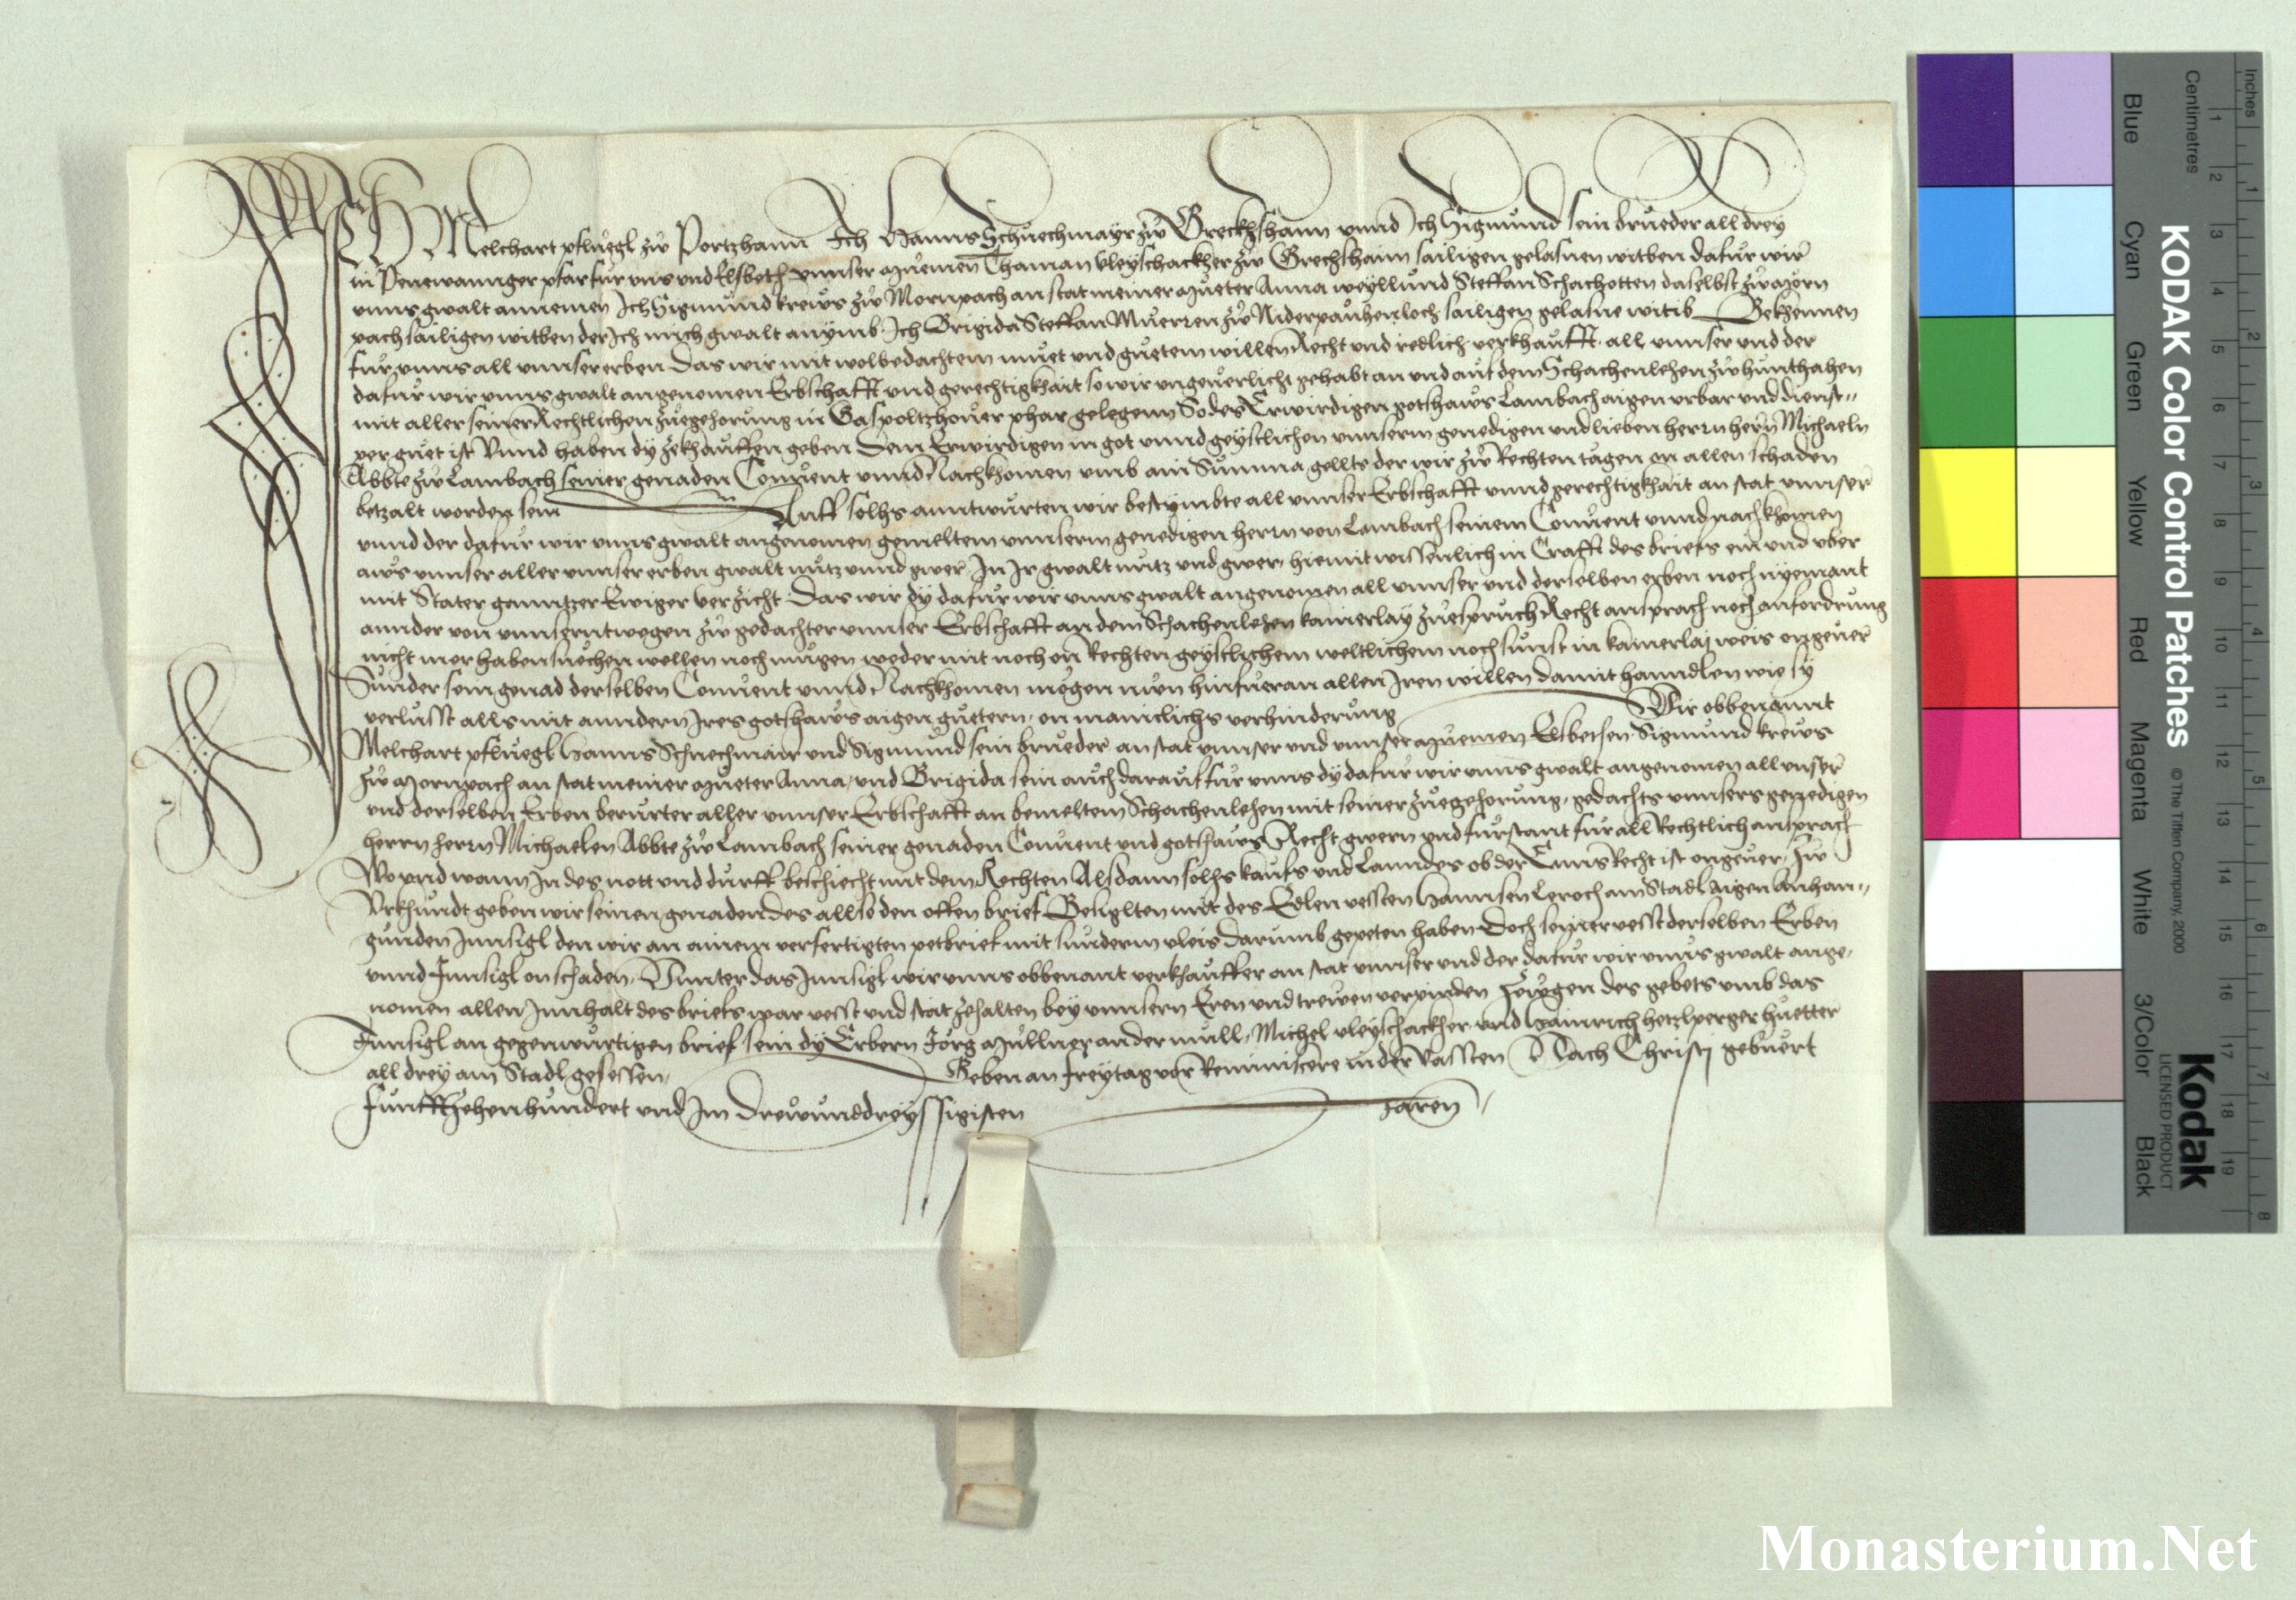 Ich Melchart pfluegl zw Portzhann Ich Hanns Schuechmayr zw Greckhshann vnnd Ich Sigmund sein brueder all drey
in Penewannger pfar fur vns vnd Elsbeth vnnser muemen Thaman vleyschackher zw Grechshaim säiligen gelasnen witben dafur wir
vnns gwalt annemen Ich Sigmund krews zw Mornpach an stat meiner mueter Anna weyllund Steffan Schachotten daselbst zw morn
pach säiligen witben der Ich mich gwalt anymb. Ich Brigida Steffan Muerren zw Niderpauhenloch säiligen gelasne witib Bekhennen
fur vnns all vnnser erben Das wir mit wolbedachtem muet vnd guetem willen Recht vnd redlich verkhaufft all vnnser vnd der
dafur wir vnns gwalt angenomen Erbschafft vnd gerechtigkhait so wir vngeuerlich gehabt an vnd auf dem Schachenlehen zw hunthahen
mit aller seiner Rechtlichen zuegehorung in Gaspoltzhouer phar gelegenn So des Erwirdigen gotshaws Lambach aigen vrbar vnd dienst-
per guet ist Vnnd haben dy zekhauffen geben Dem Erwirdigen in got vnnd geystlichen vnnserm genedigen vnd lieben herrn hern Michaeln
Abbte zw Lambach seiner genaden Conuent vnnd Nachkhomen vmb ain Summa gellts der wir zw Rechten tagen on allen schaden
betzalt worden sein Auff solhs anntwurten wir bestymbte all vnnser Erbschafft vnnd gerechtigkhait an stat vnnser
vnnd der dafur wir vnns gwalt angenomen gemeltem vnnserm genedigen herrn von Lambach seinem Conuent vnnd nachkhomen
aws vnnser aller vnnser erben gwalt nutz vnnd gwer In Ir gwalt nutz vnd gwer, hiemit wissenlich in Crafft des briefs ein vnd vber
mit Stäter ganntzer Ewiger verzicht. Das wir dy dafur wir vnns gwalt angenomen all vnnser vnd derselben erben noch nyemant
annder von vnnsernntwegen zw gedachter vnnser Erbschafft an dem Schachenlehen kainerlay zuespruch Recht ansprach noch anfordrung
nicht mer haben suechen wellen noch mugen weder mit noch on Rechten geystlichem weltlichem noch sunst in kainerlai weis ongeuer
Sunder sein genad derselben Conuent vnnd Nachkhomen mögen nwn hinfueran allen Iren willen damit hanndlen wie sy
verlusst alls mit anndern Ires gotshaws aigen guetern, on maniclichs verhinderung Wir obbenannt
Melchart pfluegl Hanns Schuechmair vnd Sigmund sein brueder an stat vnnser vnd vnnser muemen Elsbethen Sigmund krews
zw Mornpach an stat meiner mueter Anna, vnd Brigida sein auch darauf fur vnns dy dafur wir vnns gwalt angenomen all vnser
vnd derselben Erben berurter aller vnnser Erbschafft an bemeltem Schachenlehen mit seiner zuegehorung, gedachts vnnsers genedigen
herrn herrn Michaelen Abbte zw Lambach seiner genaden Conuent vnd gotshaws Recht gwern vnd furstant fur all Rechtlich ansprach
Wo vnd wann In des nott vnd durfft beschiecht mit dem Rechten Alsdann solhs kaufs vnd Lanndes ob der Enns Recht ist ongeuer, Zw
Vrkhundt geben wir seinen genaden des allso den offen brief Besiglten mit des Edlen vessten Hannsen Leroch am Stadl aigen Anhan-
gunden Innsigl den wir an ainem verfertigten petbrief mit sunderm vleis darumb gepeten haben Doch seiner vesst derselben Erben
vnnd Innsigl on schaden, Vnnter das Innsigl wir vnns obbenant verkhauffer an stat vnnser vnd der dafur wir vnns gwalt ange-
nomen allen Innhalt des briefs war vesst vnd stät zehalten bey vnnsern Eren vnd trewen verpinden Zewgen des gebets vmb das
Innsigl an gegenwurtigen brief sein dy Erbern Jorg Mullner an der mull, Michel vleyschackher vnd Hainrich hertzlperger huetter
all drey am Stadl gesessen, Geben an freytag vor Reminiscere in der vassten Nach Christj gebuert
funffzehenhundert vnd Im drewunddreyssigisten Jaren
KODAK Color Control Patches
© The Tiffen Company, 2000
Kodak
LICENSED PRODUCT
Inches
Centimetres
Blue Cyan Green Yellow Red Magenta White 3/Color Black
1 2 3 4 5 6 7 8 9 10 11 12 13 14 15 16 17 18 19
1 2 3 4 5 6 7 8
Monasterium.Net